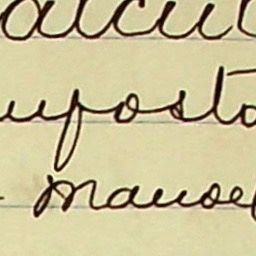 alcul
uposta
Manoel